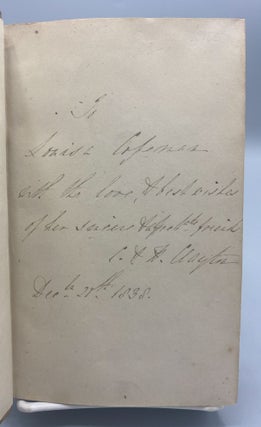 To
Louisa Copeman
with the love, & best wishes
of her sincere & affecte friends
C. & H. Clayton
Decr 20th 1838.